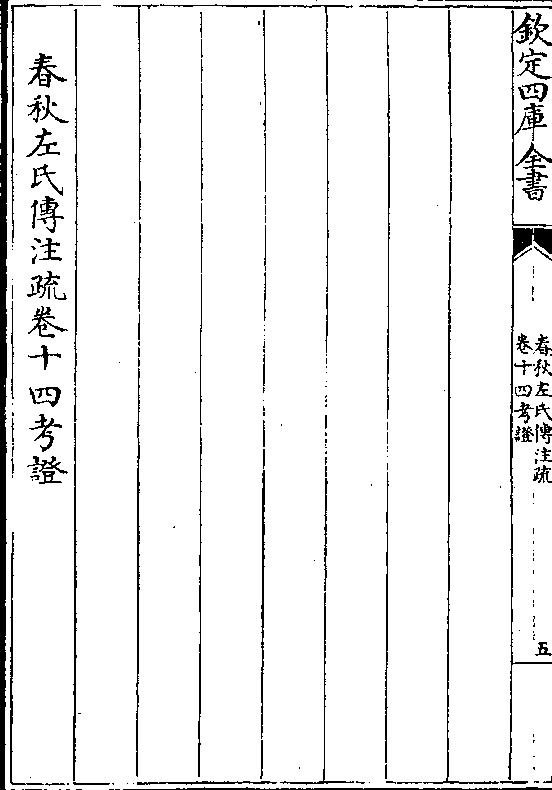 欽定四庫全書
春秋左氏傳注疏
卷十四考證
五
春秋左氏傳注疏卷十四考證